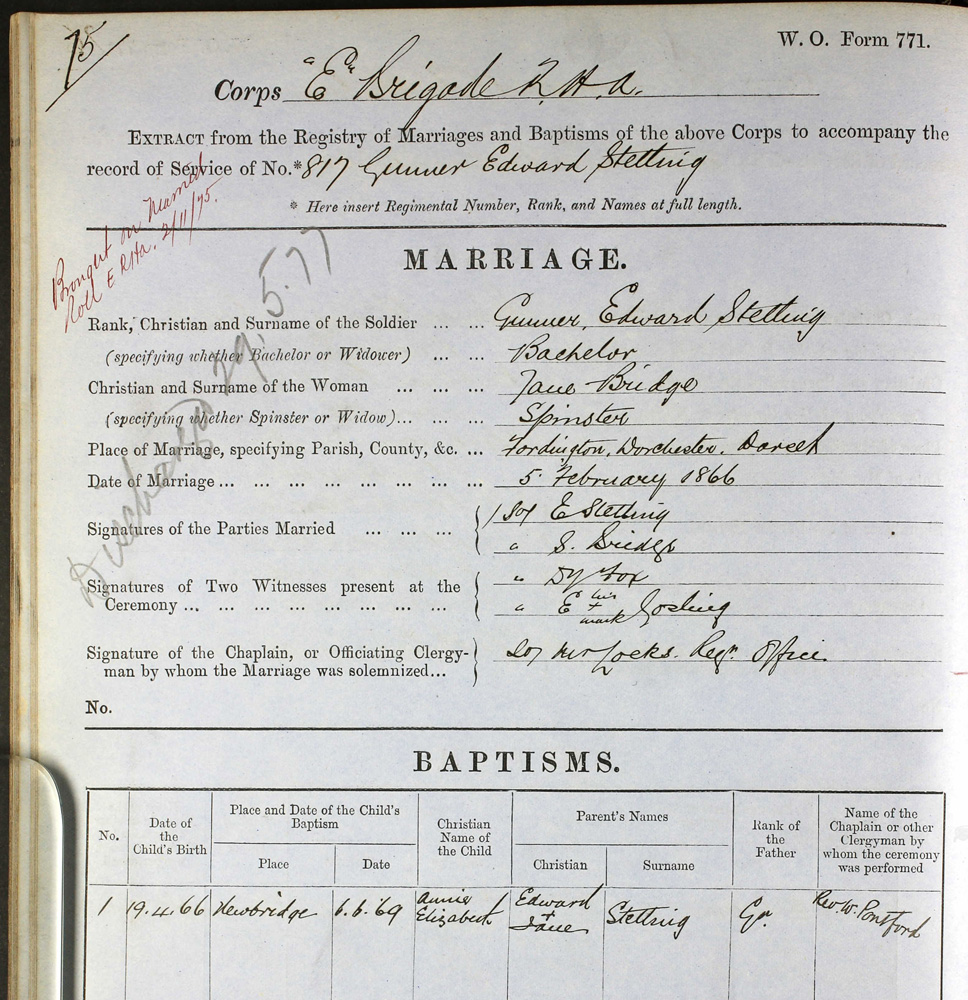 75
W. O. Form 771.
Corps "E" Brigade R.H.A.
EXTRACT from the Registry of Marriages and Baptisms of the above Corps to accompany the
record of Service of No.* 817 Gunner Edward Stelling
* Here insert Regimental Number, Rank, and Names at full length.
Brought on Married
Roll E RHA. 2/11/75.
Discharged 29.5.77
MARRIAGE.
Rank, Christian and Surname of the Soldier ... ... Gunner, Edward Stelling
(specifying whether Bachelor or Widower) ... ... Bachelor
Christian and Surname of the Woman ... ... ... Jane Bridge
(specifying whether Spinster or Widow)... ... ... Spinster
Place of Marriage, specifying Parish, County, &c. ... Fordington, Dorchester. Dorset
Date of Marriage ... ... ... ... ... ... ... ... 5 February 1866
Signatures of the Parties Married ... ... ... E Stelling
" Bridge
Signatures of Two Witnesses present at the " Fox
Ceremony ... ... ... ... ... ... ... ... " E his + mark Gosling
Signature of the Chaplain, or Officiating Clergy-
man by whom the Marriage was solemnized... Office
No.
BAPTISMS.
No. Date of the Child's Birth Place and Date of the Child's Baptism Place Date Christian Name of the Child Parent's Names Christian Surname Rank of the Father Name of the Chaplain or other Clergyman by whom the ceremony was performed
1 19.4.66 Newbridge 6.6.69 Annie Elizabeth Edward + Jane Stelling Gr. Rev. W. Ponsford